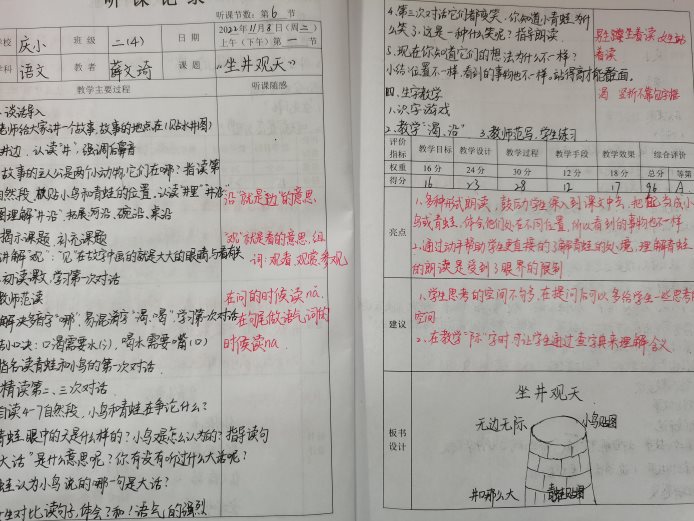 听课记录
听课节数：第6节
学校 庆小 班级 二(4) 日期 2022年11月8日(周二)
上午(下午)第一节
学科 语文 教者 薛文琦 课题 《坐井观天》
教学主要过程 听课随感
一、谈话导入
老师给大家讲一个故事,故事的地点在(贴水井图)
井边,认读"井",强调后鼻音
故事的主人公是两个小动物,它们在哪?指读第
自然段,板贴小鸟和青蛙的位置,认读 理"井沿"
图理解"井沿"拓展:河沿、碗沿、床沿
沿"就是"边"的意思
揭示课题,补充课题
讲解"观":"见"在故事中画的就是大大的眼睛,与看有关
"观"就是看的意思,组
词:观看,观赏,参观
初读课文,学习第一次对话
教师范读
解决多音字"哪",易混淆字"渴、喝"学习第一次对话
在问的时候读nǎ,
在句尾做语气词的
时候读na
小口决:口渴需要水(氵),喝水需要嘴(口)
指名读青蛙和小鸟的第一次对话
精读第二、三次对话
自读4-7自然段,小鸟和青蛙在争论什么?
青蛙眼中的天是什么样的?小鸟是怎么认为的?指导读句
大话"是什么意思呢?你有没有听过什么大话呢?
蛙认为小鸟说的哪一句是大话?
生对比读句子,体会?和!语气的强烈
4.第三次对话它们都笑,你知道小青蛙为什
么笑了,这是一种什么笑呢?指导朗读
男生 着读,女生站
着读
5.现在你知道它们的想法为什么不一样?
小结:位置不一样,看到的事物也不一样。站得高才能看
四、生字教学
渴 竖折不靠包字框
1.识字游戏
2.教学"渴、沿" 3.教师范写,学生练习
评价指标 教学目标 教学设计 教学过程 教学手段 教学效果 综合评价
权重 16分 24分 30分 12分 18分 总分 等第
得分 16 23 28 12 17 96 A
亮点
1.多种形式朗读,鼓动学生深入到课文中去,把自己当成小
鸟或青蛙,体会他们处在不同位置,所以看到的事物也不一样
2.通过动手帮助学生更直接的了解青蛙的处境,理解青蛙
的朗读是受到了眼界的限制
建议
1.学生思考的空间不够多,在提问后可以多给学生一些思考的
空间
2.在教学"际"字时可让学生通过查字典来理解含义
板书设计
坐井观天
无边无际 小鸟贴图
井口那么大 青蛙贴图